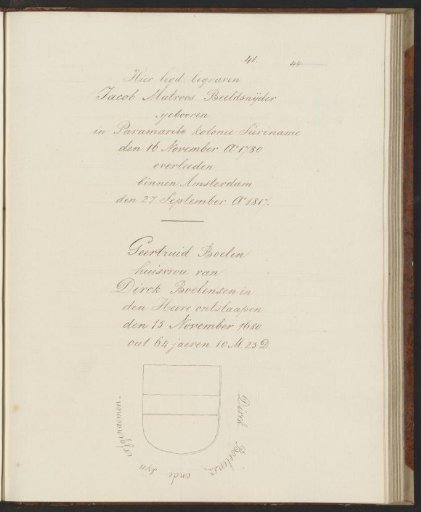 41. 44
Hier leed begraven
Jacob Matroos Beeldsnijder
geborren
in Paramaribo kolonie Suriname
den 16 November Aº 1780
overleeden
binnen Amsterdam
den 27 September Aº 1817.
Geertruid Boelen
huisvrou van
Dirck Boelensen in
den Heere ontslaapen
den 15 November 1680
out 64 jaeren 10 M 23 D
Dirck Boelensz ende syn